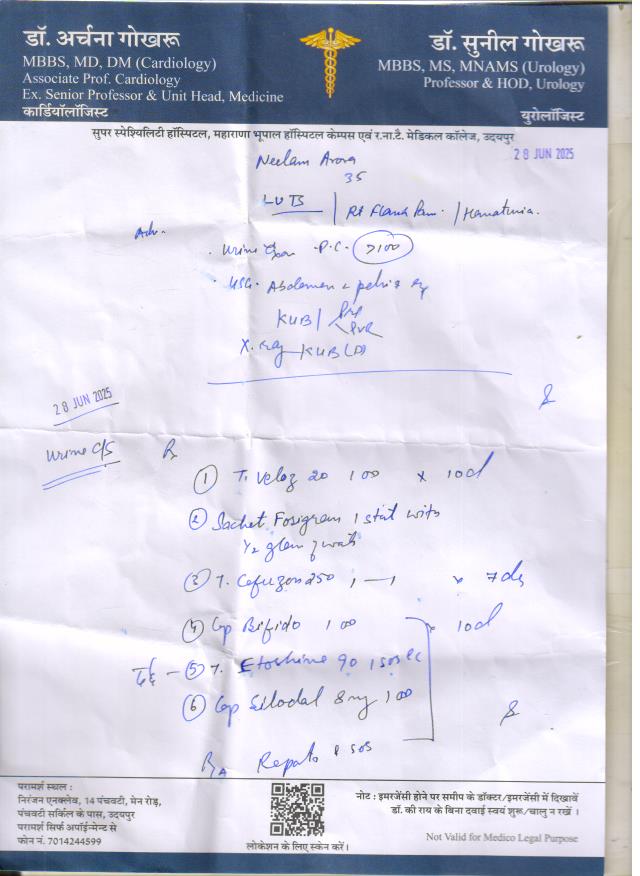 डॉ. अर्चना गोखरू
MBBS, MD, DM (Cardiology)
Associate Prof. Cardiology
Ex. Senior Professor & Unit Head, Medicine
कार्डियॉलॉजिस्ट
डॉ. सुनील गोखरू
MBBS, MS, MNAMS (Urology)
Professor & HOD, Urology
युरोलॉजिस्ट
सुपर स्पेश्यिलिटी हॉस्पिटल, महाराणा भूपाल हॉस्पिटल केम्पस एवं र.ना.टै. मेडिकल कॉलेज, उदयपुर
28 JUN 2025
Neelam Arora
35
LUTS | Rt Flank Pain / Hematuria.
Adv.
Urine P.C. >100
USG. Abdomen & pelvis
KUB / Pre
PVR
X. ray KUB
28 JUN 2025
Urine C/S
① T. Veloz 20 1 00 x 10d
② Sachet Fosigram 1 stat with
1/2 glass water
③ T. Cefuzon 250 1 — 1 x 7 days
④ Cap Bifido 1 00 x 10d
⑤ T. Etoshine 90 1 sos
⑥ Cap Silodal 8mg 1 00
sos
परामर्श स्थल :
निरंजन एनक्लेव, 14 पंचवटी, मेन रोड़,
पंचवटी सर्किल के पास, उदयपुर
परामर्श सिर्फ अपॉईन्मेन्ट से
फोन नं. 7014244599
लोकेशन के लिए स्केन करें।
नोट : इमरजेंसी होने पर समीप के डॉक्टर/इमरजेंसी में दिखावें
डॉ. की राय के बिना दवाई स्वयं शुरू/चालु न रखें ।
Not Valid for Medico Legal Purpose